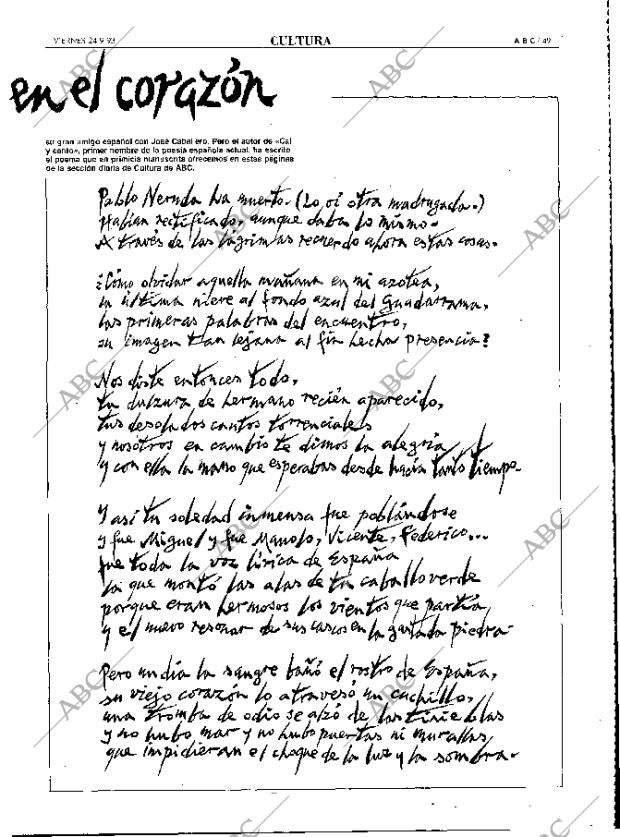 VIERNES 24-9-93
CULTURA
ABC / 49
en el corazón
su gran amigo español con José Caballero. Pero el autor de «Cal
y canto», primer nombre de la poesía española actual, ha escrito
el poema que en primicia manuscrita ofrecemos en estas páginas
de la sección diaria de Cultura de ABC.
Pablo Neruda ha muerto. (Lo oí otra madrugada.)
Habían rectificado, aunque daba lo mismo.
A través de las lágrimas recuerdo ahora estas cosas.
¿Cómo olvidar aquella mañana en mi azotea,
la última nieve al fondo azul del Guadarrama,
las primeras palabras del encuentro,
su imagen tan lejana al fin hecha presencia?
Nos diste entonces todo,
tu dulzura de hermano recién aparecido,
tus desolados cantos torrenciales
y nosotros en cambio te dimos la alegría
y con ella la mano que esperabas desde hacía tanto tiempo.
Y así tu soledad inmensa fue poblándose
y fue Miguel y fue Manolo, Vicente, Federico...
fue toda la voz lírica de España
la que montó las alas de tu caballo verde
porque eran hermosos los vientos que partía
y el nuevo resonar de sus cascos en la gastada piedra.
Pero un día la sangre bañó el rostro de España,
su viejo corazón lo atravesó un cuchillo,
una tromba de odio se alzó de las tinieblas
y no hubo mar y no hubo puertas ni murallas
que impidieran el choque de la luz y la sombra.